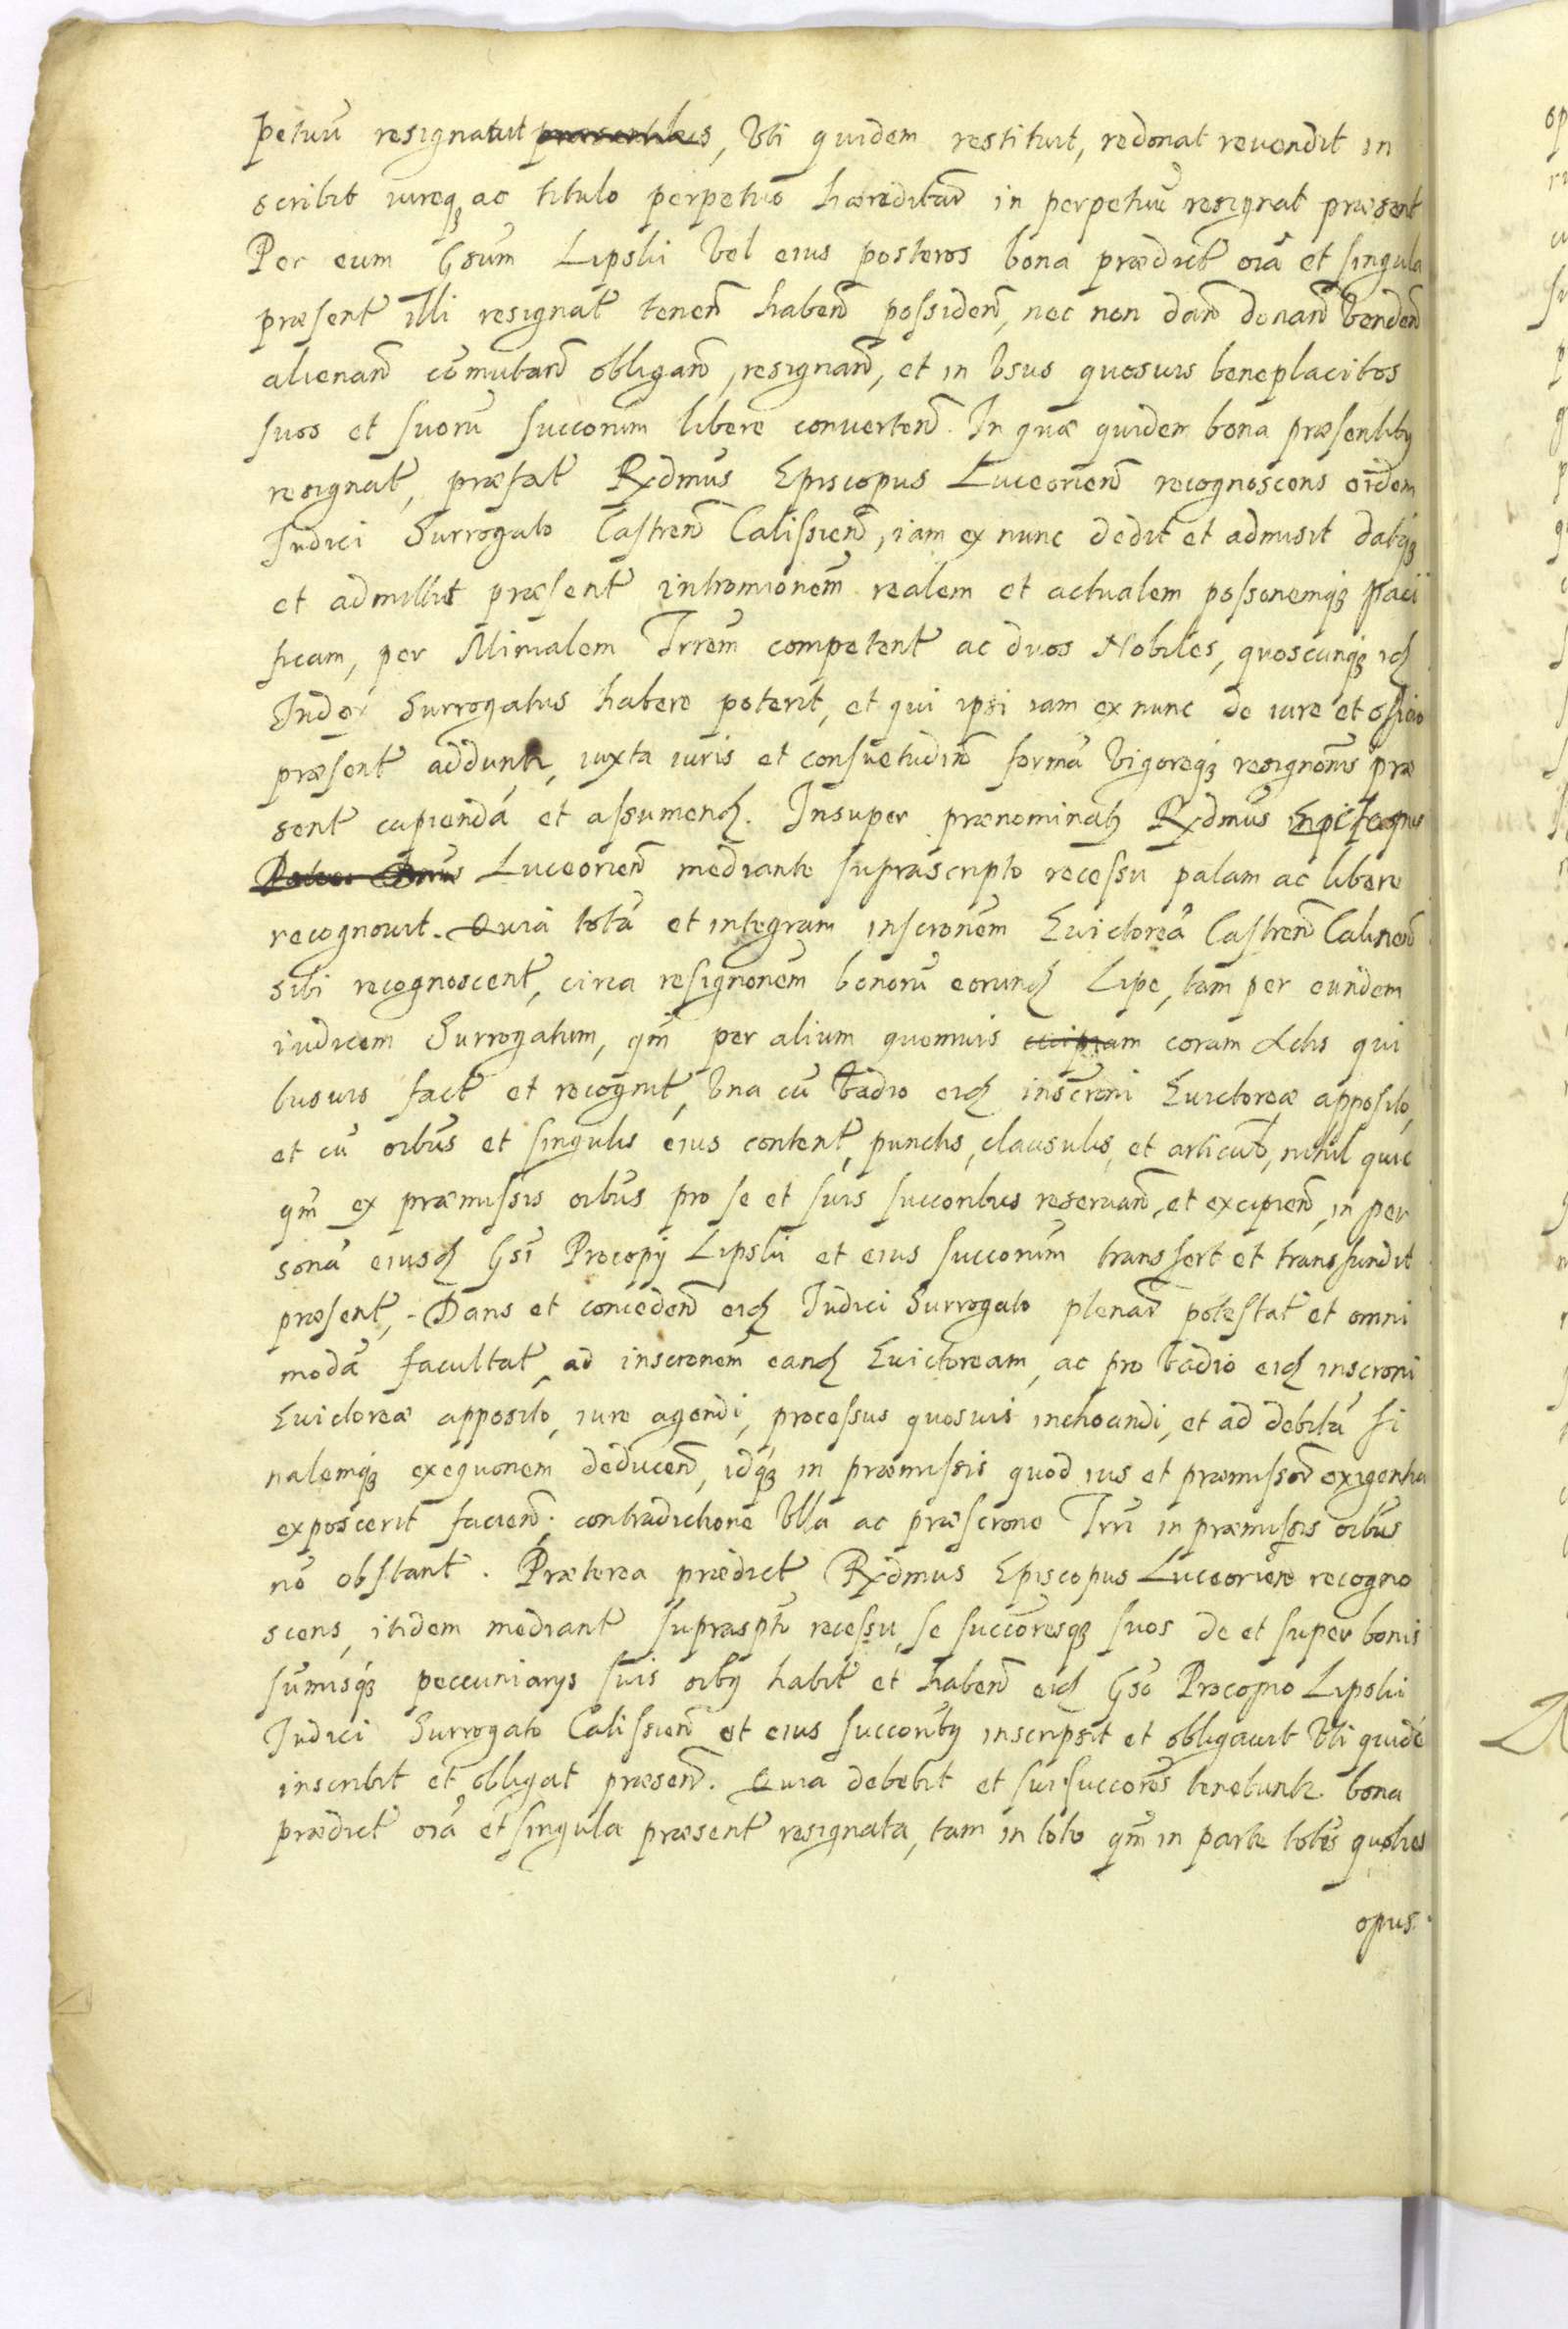 petuũ resignatut praesentibus, Vti quidem restituit, redonat reuendit in
scribit iureq₃ ac titulo perpetuo haereditar̃ in perpetuũ resignat praesent̃
Per eum Gsum̃ Lipski Vel eius posteros bona praedict̃ oiã et singula
praesent̃ illi resignat̃ tenen̄ haben̄ possiden̄, nec non dan̄ donan̄ Venden̄
alienan̄ com̃utan̄ obligan̄, resignan̄, et in Vsus quosuis beneplacitos
suos et suorũ succorum libere conuerten̄. In quae quidem bona praesentibȝ
resignat̃, praefat̃ Rx̃dmus Episcopus Luceorien̄ recognoscens eidem
Iudici Surrogato Castren̄ Calissien̄, iam ex nunc dedit et admisit datq₃
et admittit praesent̃ intromionem̃ realem et actualem possonemq₃ paci
ficam, per Mirialem Trrem̃ competent̃ ac duos Nobiles, quoscunq₃ idȝ
Iudex Surrogatus habere poterit, et qui ipsi iam ex nunc de iure et offici̇o
praesent̃ addunt̃, iuxta iuris et consuetudin̄ formã Vigoreq₃ resignonis̃ prae
sent̃ capiendã et assumendȝ. Insuper praenominatȝ Rx̃dmus Episcopus
Luceorien̄ mediante suprascripto recessu palam ac libere
recognouit. Quia totã et integram inscronem̃ Euictoreã Castren̄ Calinen̄
sibi recognoscent̃, circa resignonem̃ bonorũ eorundȝ Lipe, tam per eundem
iudicem Surrogatum, qm̃ per alium quemuis coram Actis qui
busuis fact̃ et recognit̃, Vna cũ Vadio eidȝ inscroni Euictoreae apposito,
et cũ oibũs et singulis eius content̃, punctis, clausulis, et articul̃, nihil quic
qm̃ ex praemissis oibũs pro se et suis succoribus reseruan̄, et excipien̄, in per
sonã eiusdȝ Gsi Procopij Lipski et eius succorum̃ transfert et transfundit
praesent̃, - Dans et conceden̄ eidȝ Iudici Surrogato plenar̃ potestat̃ et omni
modã facultat̃, ad inscronem̃ eandȝ Euictoream, ac pro Vadio eidȝ inscroni
Euictoreae apposito, iure agendi, processus quosuis inchoandi, et ad debitã fi
nalemq₃ exequonem deducen̄, idq₃ in praemissis quod ius et praemissor̃ exigentia
exposcerit facien̄; contradictione Vlla ac praescrone Trri in praemissis oibũs
nõ obstant̃. Praeterea praedict̃ Rx̃dmus Episcopus Luceorien̄ recogno
scens, itidem mediant̃ suprasptõ recessu, se succoresq₃ suos de et super bonis
sum̃isq₃ peccuniarijs suis oibȝ habit̃ et haben̄ eidȝ Gso Procopio Lipski
Iudici Surrogato Calissien̄ et eius succoribȝ inscripsit et obligauit Vti quidẽ
inscribit et obligat praesen̄. Quia debebit et sui succores̃ tenebunt̃ bona
praedict̃ oiã et singula praesent̃ resignata, tam in toto qm̃ in parte toties quoties
opus.